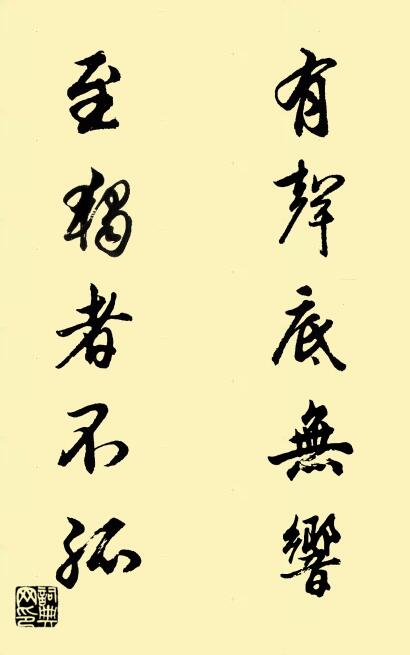 有聲底無響
至獨者不孤
詞典網印